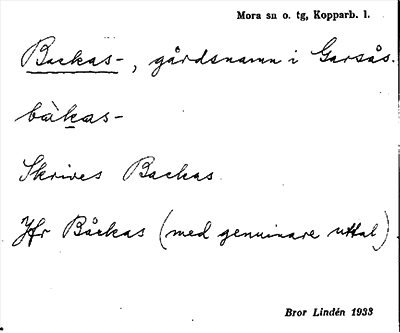 Mora sn o. tg, Kopparb. l.
Backas-, gårdsnamn i Garsås.
bàkas-
Skrives Backas.
Jfr Båckas (med genuinare uttal).
Bror Lindén 1933